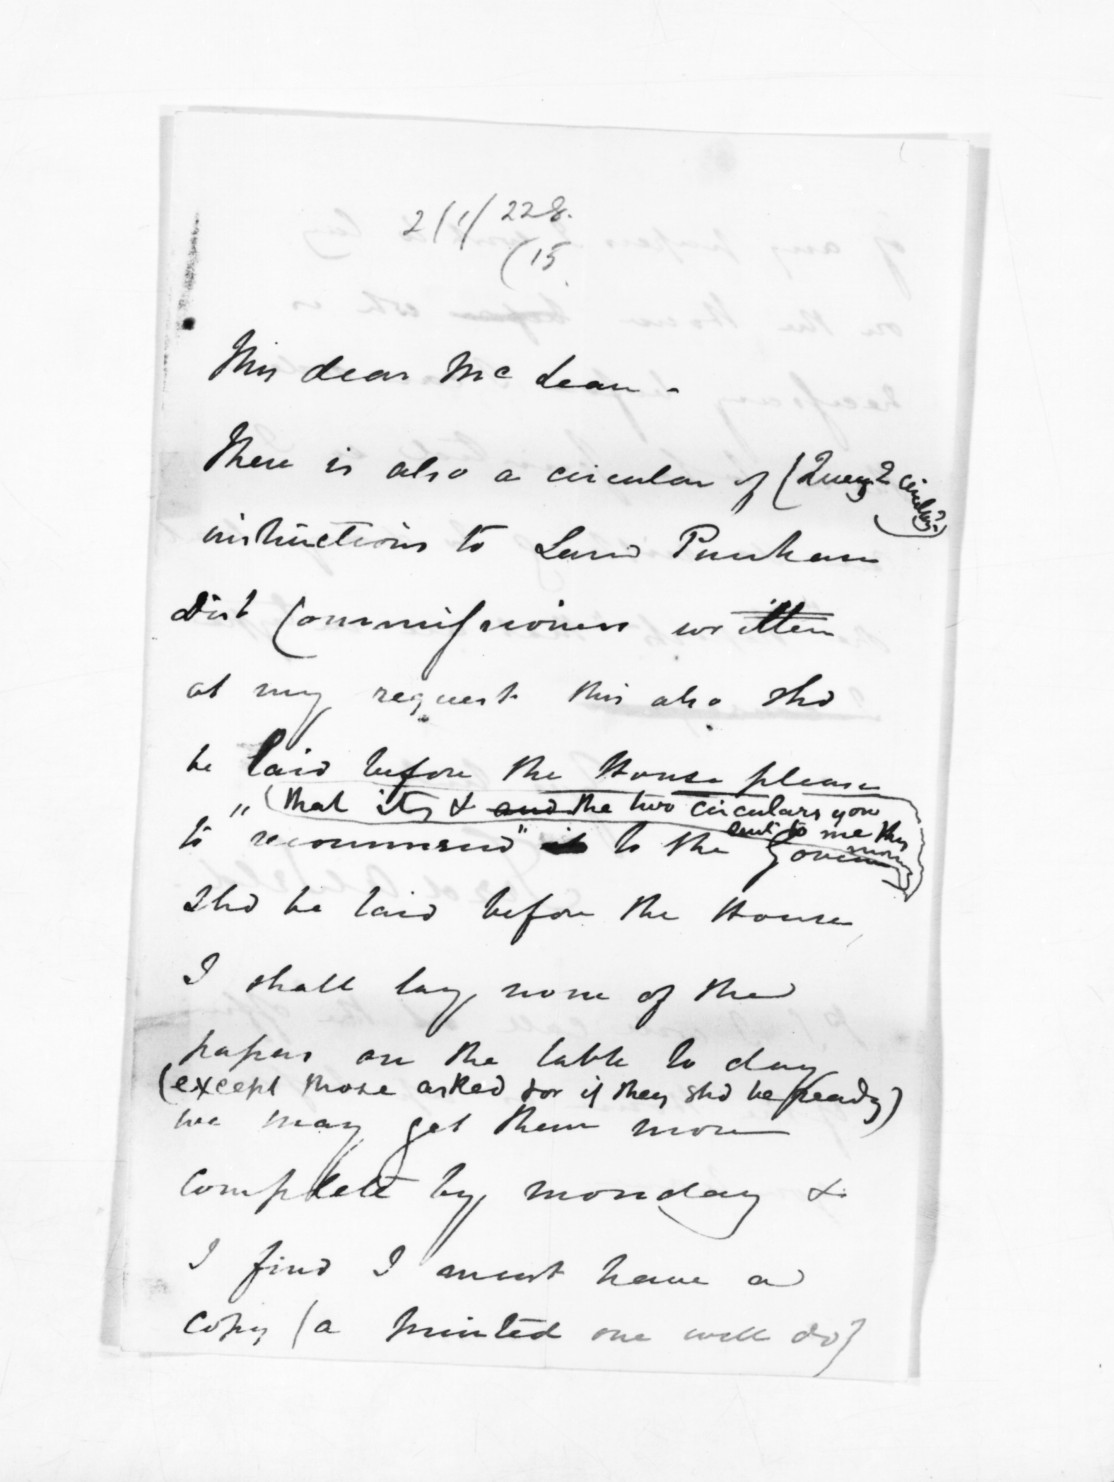 2/1/228.
(15
My dear McLean -
There is also a circular of (Query 2 circulars?)
instructions to Land Purchase
Dist Commissioners written
at my request this also shd
be laid before the House please
"(that it, & and the two circulars you
sent to me this
to recommend" to the Governor
shd be laid before the House
I shall lay none of the
papers on the table to day
(except those asked for if they shd be ready)
we may get them more
complete by monday &
I find I must have a
copy (a printed one will do)